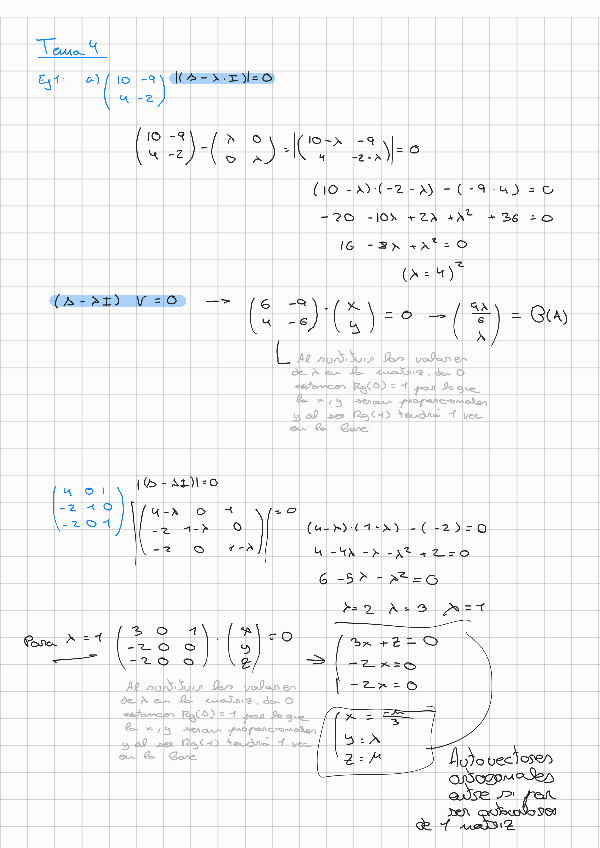 Tema 4
Ej 1: a) (10 -9; 4 -2) |(A - λ·I)| = 0
(10 -9; 4 -2) - (λ 0; 0 λ) = |(10-λ -9; 4 -2-λ)| = 0
(10 - λ)·(-2 - λ) - (-9·4) = 0
-20 -10λ + 2λ + λ² + 36 = 0
16 - 8λ + λ² = 0
(λ = 4)²
(A - λI) V = 0 → (6 -9; 4 -6)·(x; y) = 0 → (9λ/6; λ) = B(A)
Al sustituir los valores
de λ en la matriz, da 0
entonces Rg(A) = 1 por lo que
la x, y seran proporcionales
y al ser Rg(1) tendrá 1 vec
en la base
(4 0 1; -2 1 0; -2 0 1) |(A - λI)| = 0
|(4-λ 0 1; -2 1-λ 0; -2 0 1-λ)| = 0
(4-λ)·(1-λ) - (-2) = 0
4 - 4λ - λ - λ² + 2 = 0
6 - 5λ - λ² = 0
λ = 2 λ = 3 λ = 1
Para λ = 1 (3 0 1; -2 0 0; -2 0 0)·(x; y; z) = 0 →
3x + z = 0
-2x = 0
-2x = 0
Al sustituir los valores
de λ en la matriz, da 0
entonces Rg(A) = 1 por lo que
la x, y seran proporcionales
y al ser Rg(1) tendrá 1 vec
en la base
x = -μ/3
y = λ
z = μ
Autovectores
ortogonales
entre si por
ser
de 1 matriz